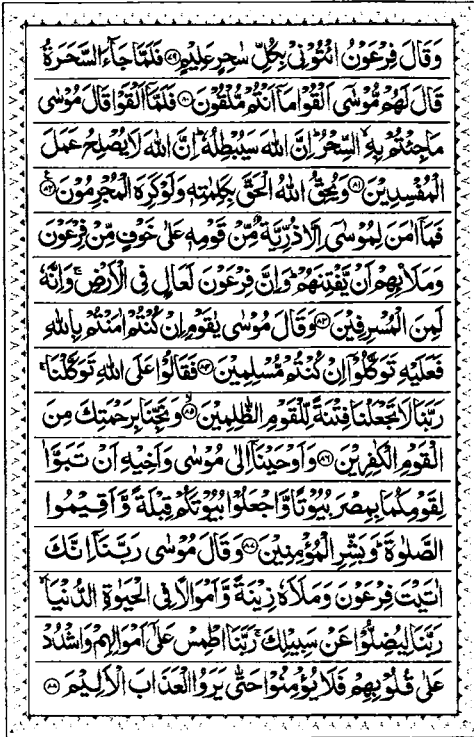 وَقَالَ فِرْعَوْنُ ائْتُوْنِیْ بِكُلِّ سٰحِرٍ عَلِیْمٍ ﴿۷۹﴾ فَلَمَّا جَآءَ السَّحَرَةُ
قَالَ لَهُمْ مُّوْسٰۤی اَلْقُوْا مَاۤ اَنْتُمْ مُّلْقُوْنَ ﴿۸۰﴾ فَلَمَّاۤ اَلْقَوْا قَالَ مُوْسٰی
مَا جِئْتُمْ بِهِ ۙ السِّحْرُ ؕ اِنَّ اللّٰهَ سَیُبْطِلُهٗ ؕ اِنَّ اللّٰهَ لَا یُصْلِحُ عَمَلَ
الْمُفْسِدِیْنَ ﴿۸۱﴾ وَیُحِقُّ اللّٰهُ الْحَقَّ بِكَلِمٰتِهٖ وَلَوْ كَرِهَ الْمُجْرِمُوْنَ ﴿۸۲﴾
فَمَاۤ اٰمَنَ لِمُوْسٰۤی اِلَّا ذُرِّیَّةٌ مِّنْ قَوْمِهٖ عَلٰی خَوْفٍ مِّنْ فِرْعَوْنَ
وَمَلَا۠ئِهِمْ اَنْ یَّفْتِنَهُمْ ؕ وَاِنَّ فِرْعَوْنَ لَعَالٍ فِی الْاَرْضِ ۚ وَاِنَّهٗ
لَمِنَ الْمُسْرِفِیْنَ ﴿۸۳﴾ وَقَالَ مُوْسٰی یٰقَوْمِ اِنْ كُنْتُمْ اٰمَنْتُمْ بِاللّٰهِ
فَعَلَیْهِ تَوَكَّلُوْۤا اِنْ كُنْتُمْ مُّسْلِمِیْنَ ﴿۸۴﴾ فَقَالُوْا عَلَی اللّٰهِ تَوَكَّلْنَا ۚ
رَبَّنَا لَا تَجْعَلْنَا فِتْنَةً لِّلْقَوْمِ الظّٰلِمِیْنَ ﴿۸۵﴾ وَنَجِّنَا بِرَحْمَتِكَ مِنَ
الْقَوْمِ الْكٰفِرِیْنَ ﴿۸۶﴾ وَاَوْحَیْنَاۤ اِلٰی مُوْسٰی وَاَخِیْهِ اَنْ تَبَوَّاٰ
لِقَوْمِكُمَا بِمِصْرَ بُیُوْتًا وَّاجْعَلُوْا بُیُوْتَكُمْ قِبْلَةً وَّاَقِیْمُوا
الصَّلٰوةَ ؕ وَبَشِّرِ الْمُؤْمِنِیْنَ ﴿۸۷﴾ وَقَالَ مُوْسٰی رَبَّنَاۤ اِنَّكَ
اٰتَیْتَ فِرْعَوْنَ وَمَلَاَهٗ زِیْنَةً وَّاَمْوَالًا فِی الْحَیٰوةِ الدُّنْیَا ۙ
رَبَّنَا لِیُضِلُّوْا عَنْ سَبِیْلِكَ ۚ رَبَّنَا اطْمِسْ عَلٰۤی اَمْوَالِهِمْ وَاشْدُدْ
عَلٰی قُلُوْبِهِمْ فَلَا یُؤْمِنُوْا حَتّٰی یَرَوُا الْعَذَابَ الْاَلِیْمَ ﴿۸۸﴾